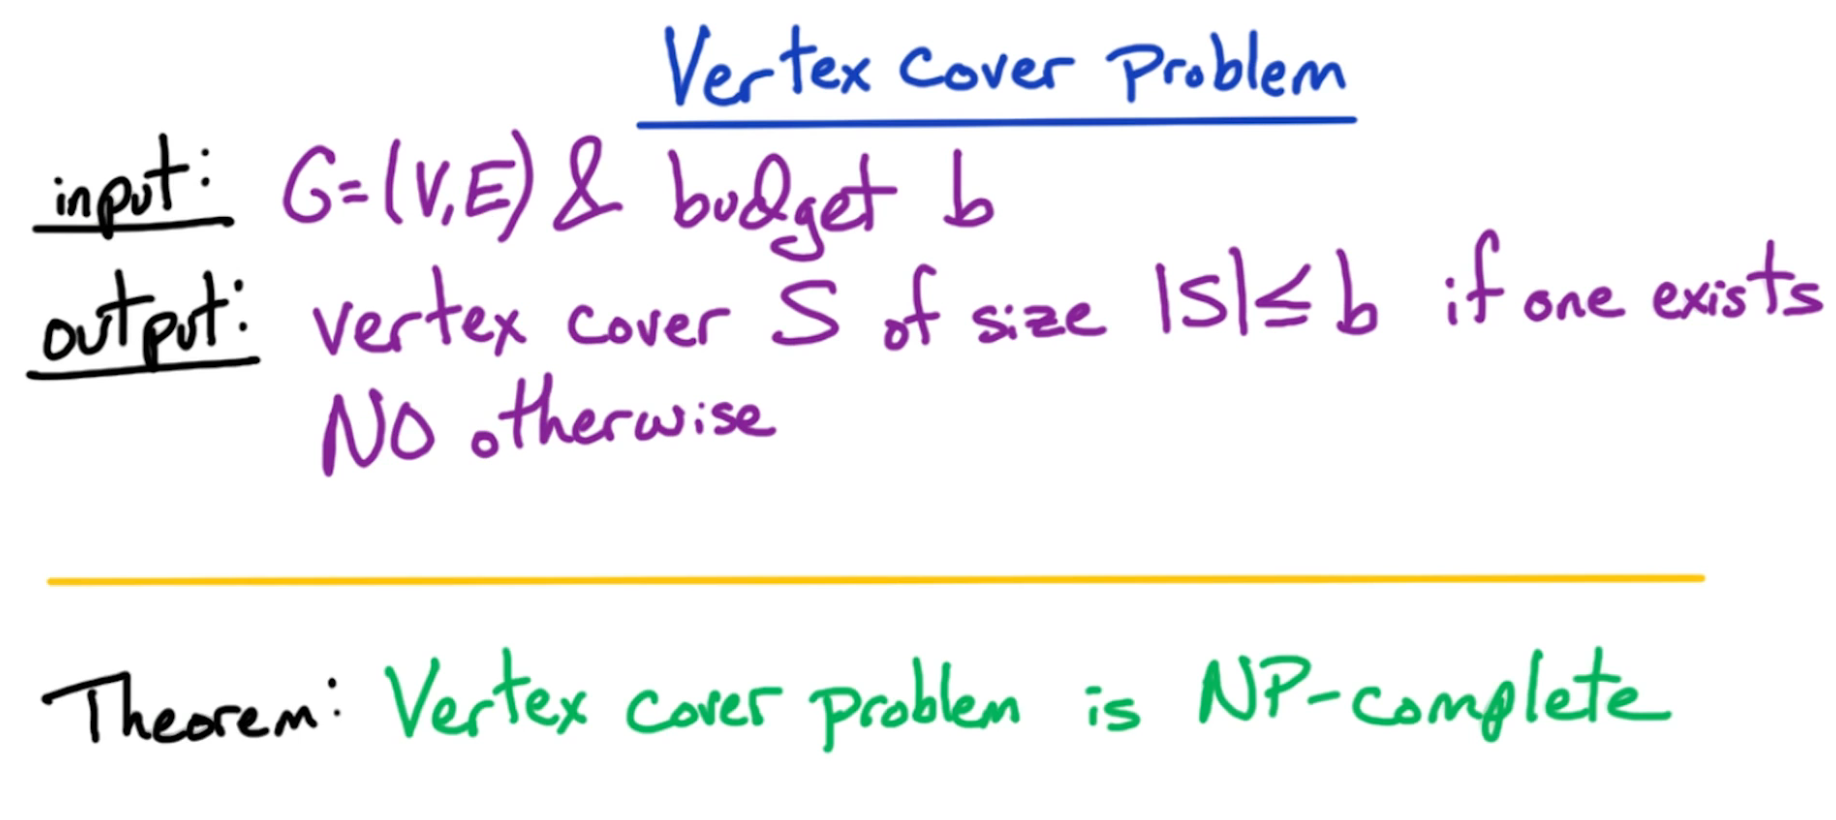 Vertex Cover Problem
input: G=(V,E) & budget b
output: vertex cover S of size |S|≤b if one exists
NO otherwise
Theorem: Vertex cover problem is NP-complete